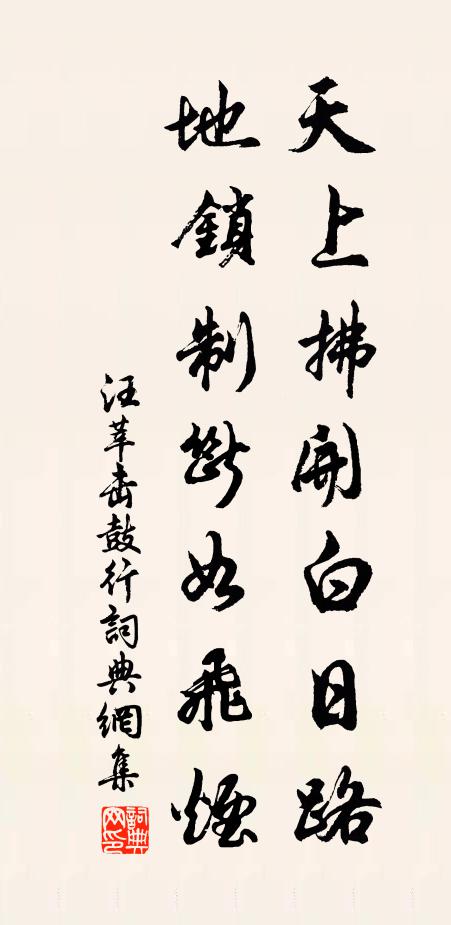 天上拂開白日路
地鎖制斷如飛煙
汪莘擊鼓行詞典網集
詞典網印